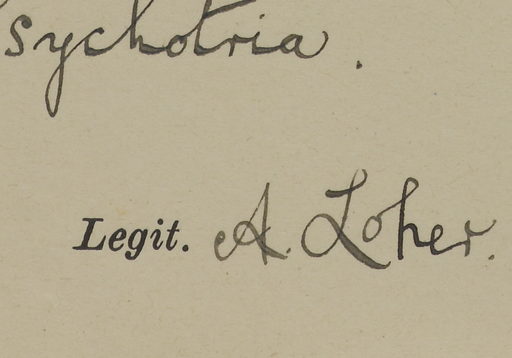 sychotria.
Legit. A. Loher.